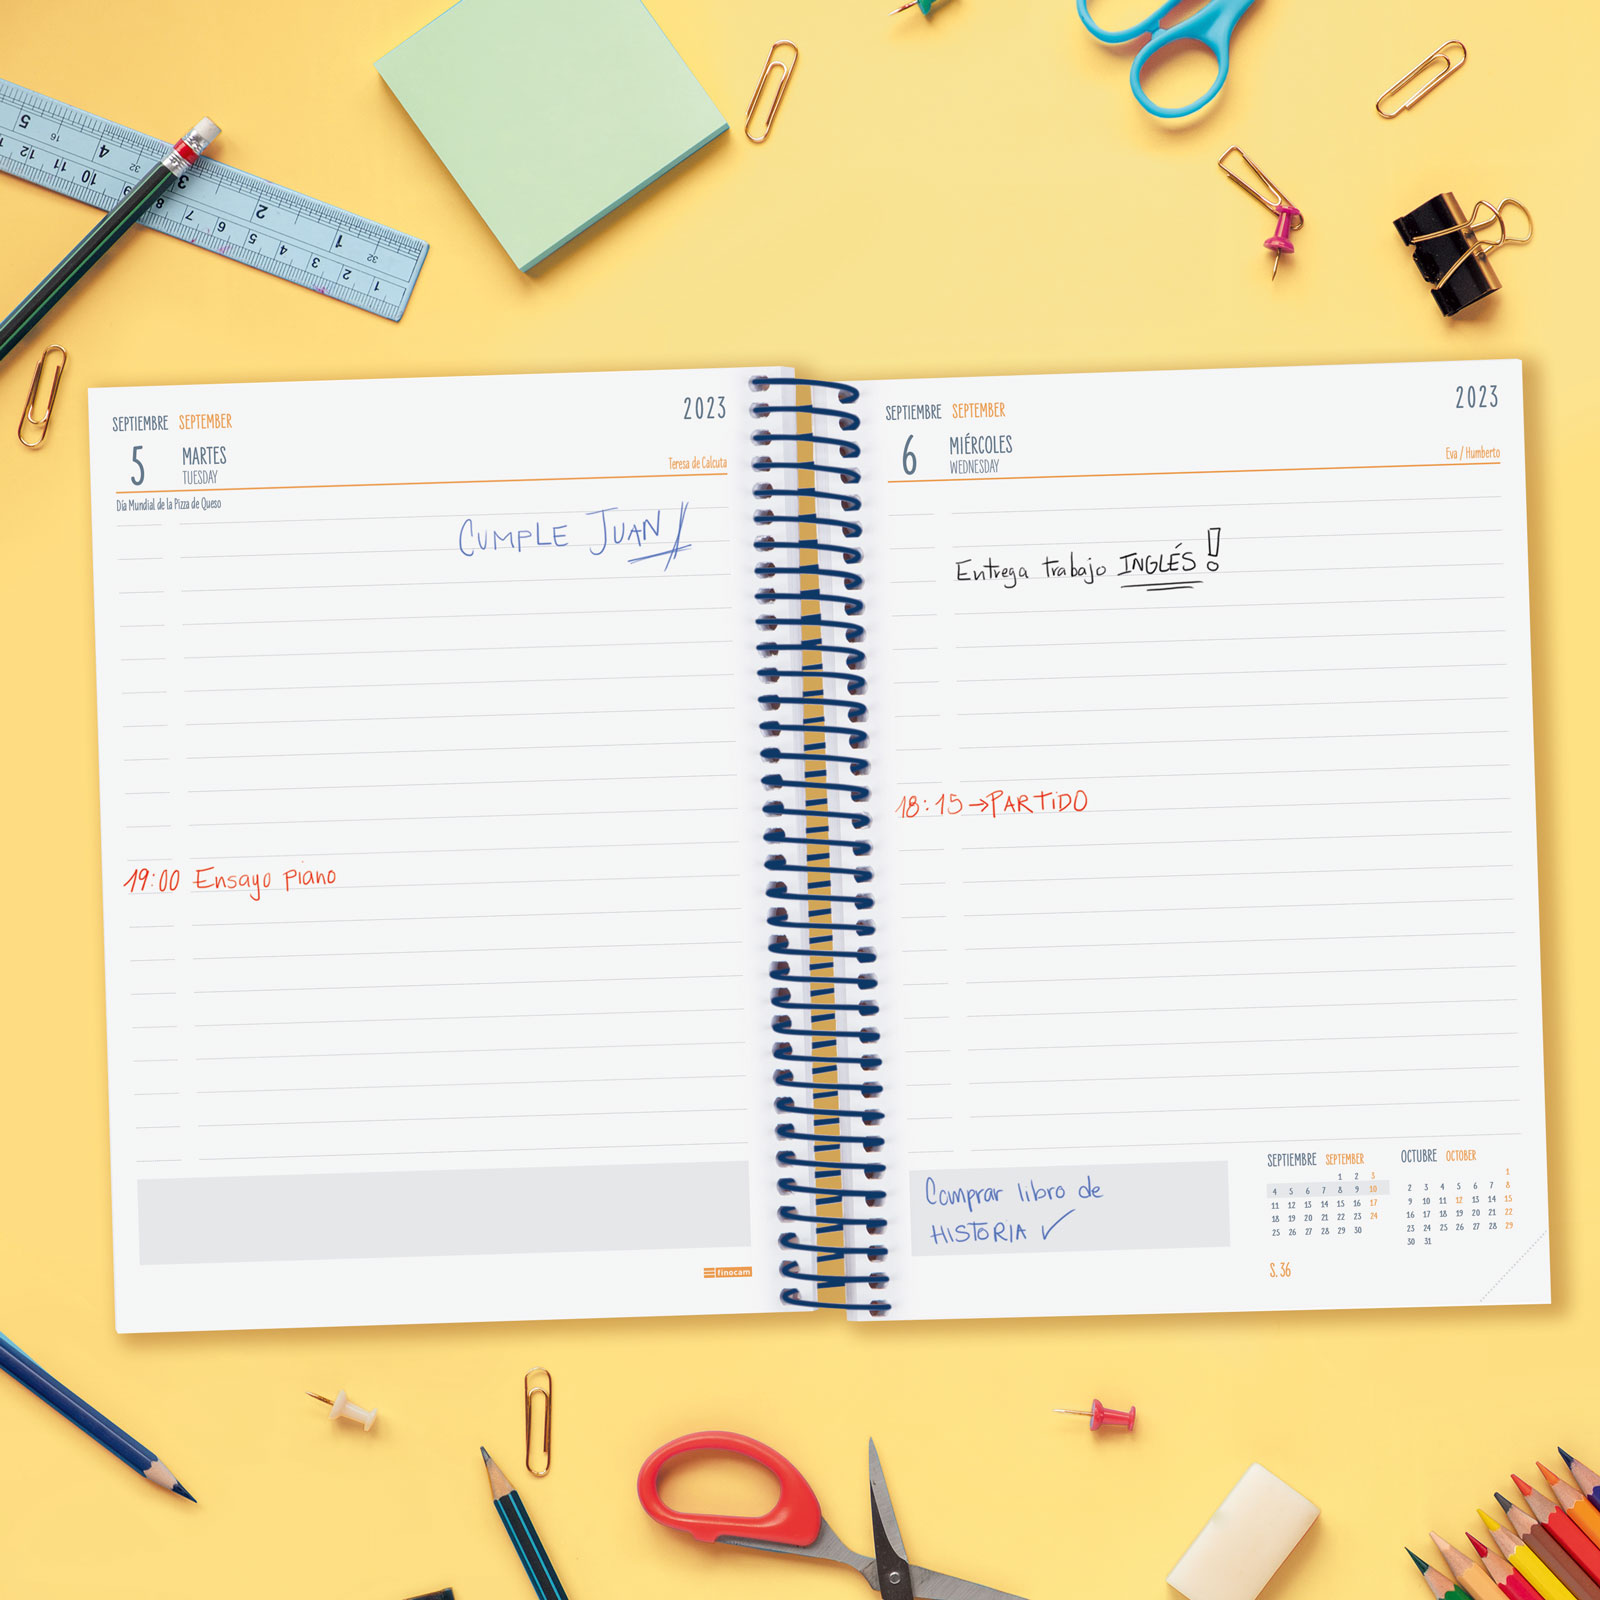 SEPTIEMBRE SEPTEMBER 2023
5 MARTES
TUESDAY
Teresa de Calcuta
Día Mundial de la Pizza de Queso
CUMPLE JUAN
19:00 Ensayo piano
finocam
SEPTIEMBRE SEPTEMBER 2023
6 MIÉRCOLES
WEDNESDAY
Eva / Humberto
Entrega trabajo INGLÉS!
18:15→PARTIDO
Comprar libro de
HISTORIA ✓
SEPTIEMBRE SEPTEMBER
1 2 3
4 5 6 7 8 9 10
11 12 13 14 15 16 17
18 19 20 21 22 23 24
25 26 27 28 29 30
S. 36
OCTUBRE OCTOBER
1
2 3 4 5 6 7 8
9 10 11 12 13 14 15
16 17 18 19 20 21 22
23 24 25 26 27 28 29
30 31
5 4 3 2 1
16 32 32
12 11 10 9 8 7 6 5 4 3 2 1